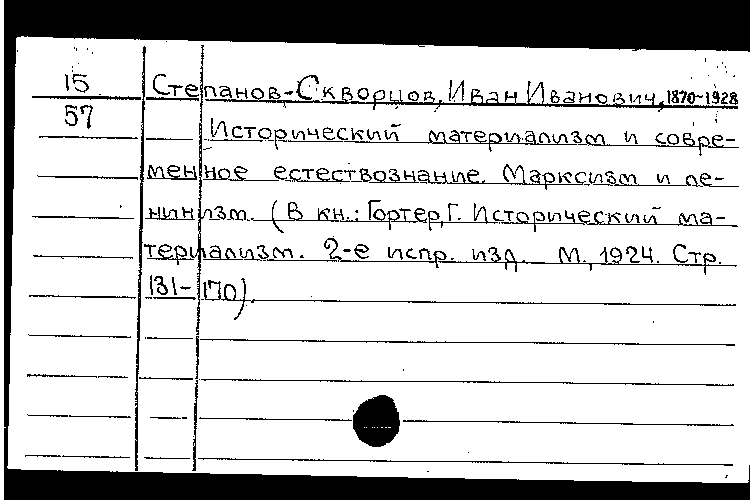 15
57
Степанов-Скворцов, Иван Иванович, 1870-1928
Исторический материализм и совре-
менное естествознание. Марксизм и ле-
нинизм. (В кн.: Гортер, Г. Исторический ма-
териализм. 2-е испр. изд. М., 1924. Стр.
131-170).